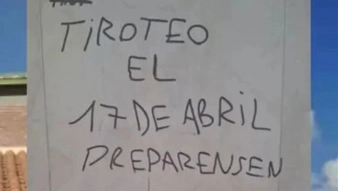 TiROTEO
EL
17 DE ABRiL
PREPARENSEN